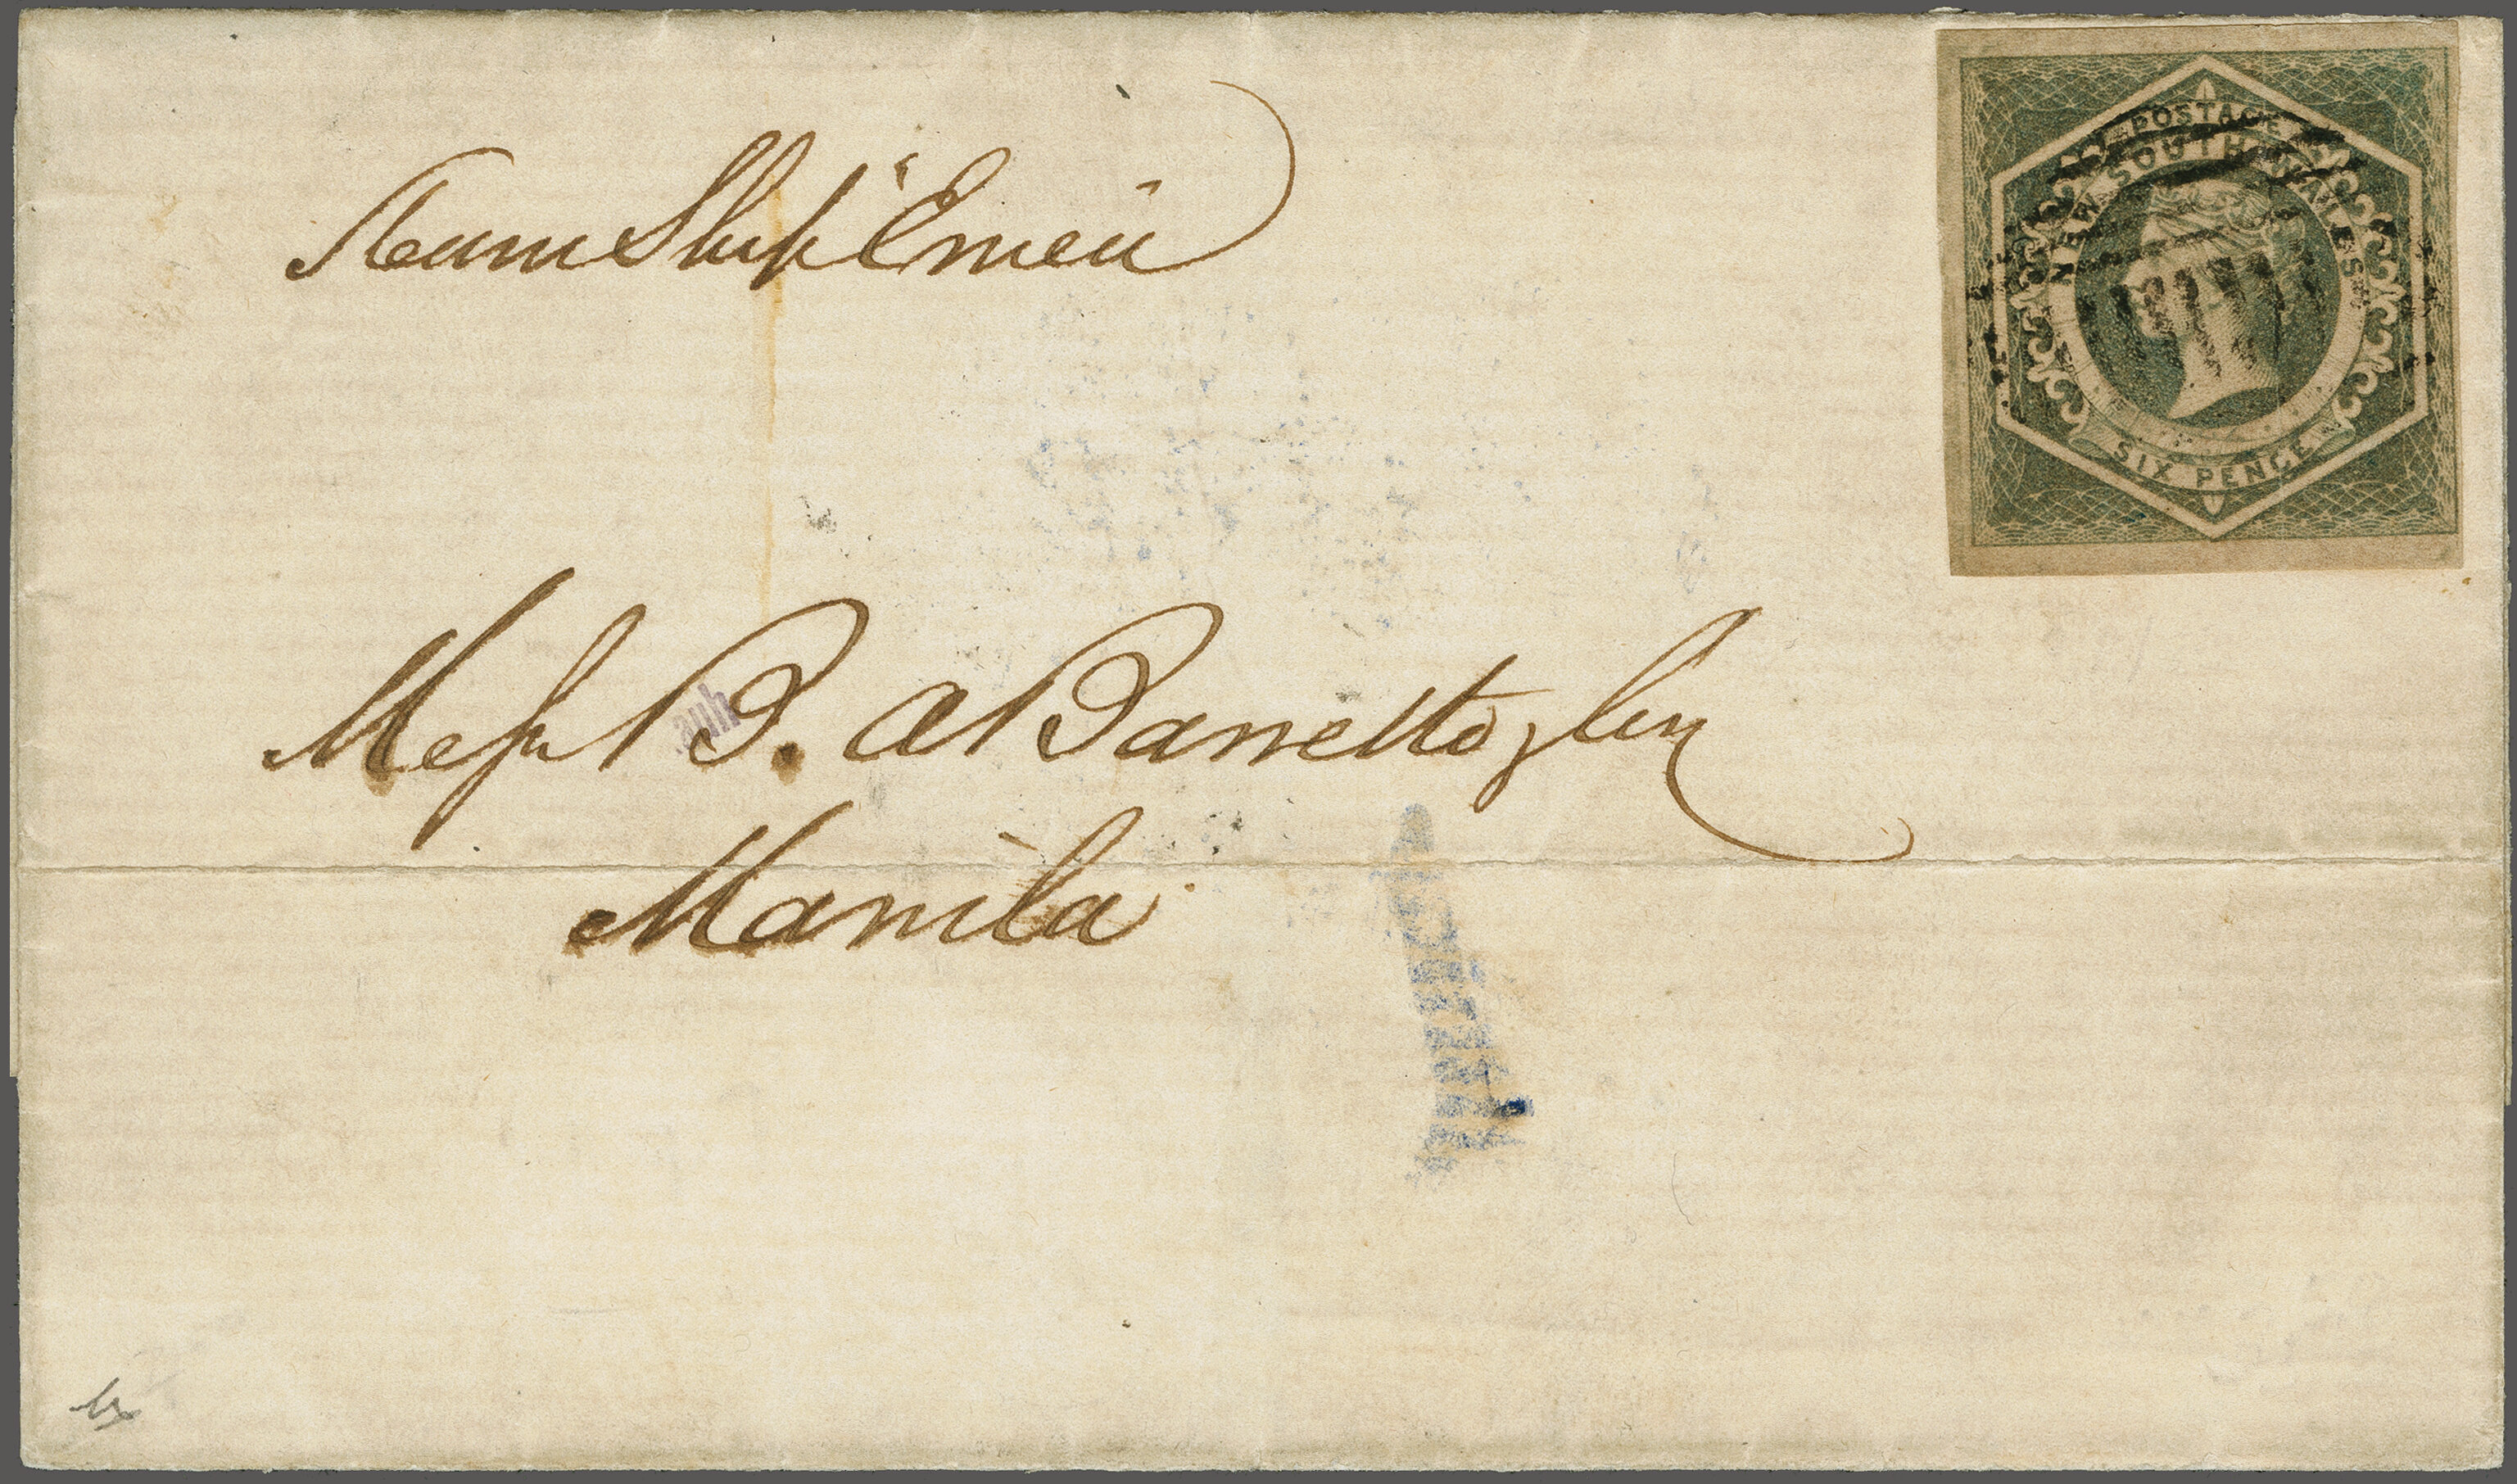 Steam Ship "Emeu"
POSTAGE
NEW SOUTH WALES
SIX PENCE
Messrs B. A Barretto & Co
Manila